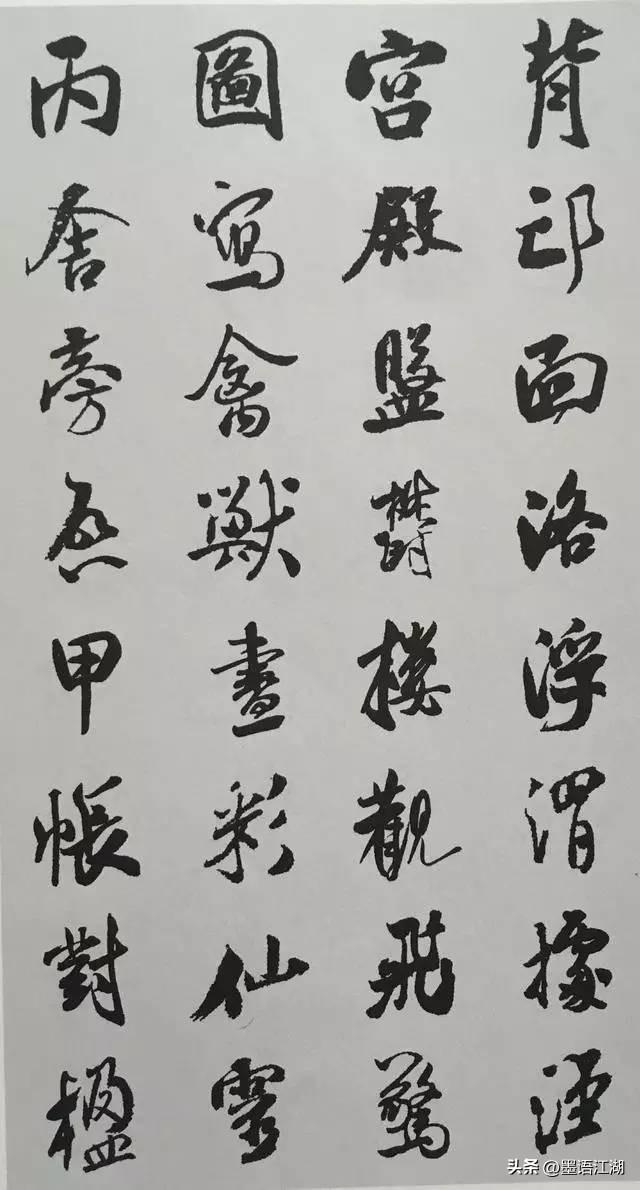 背邙面洛浮渭據涇
宮殿盤鬱樓觀飛驚
圖寫禽獸畫彩仙靈
丙舍旁啟甲帳對楹
头条@墨语江湖